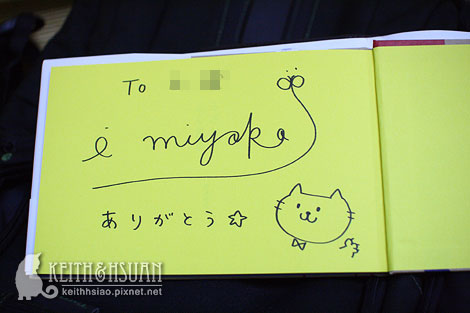 To
i miyoko
ありがとう☆
KEITH&HSUAN
keithhsiao.pixnet.net